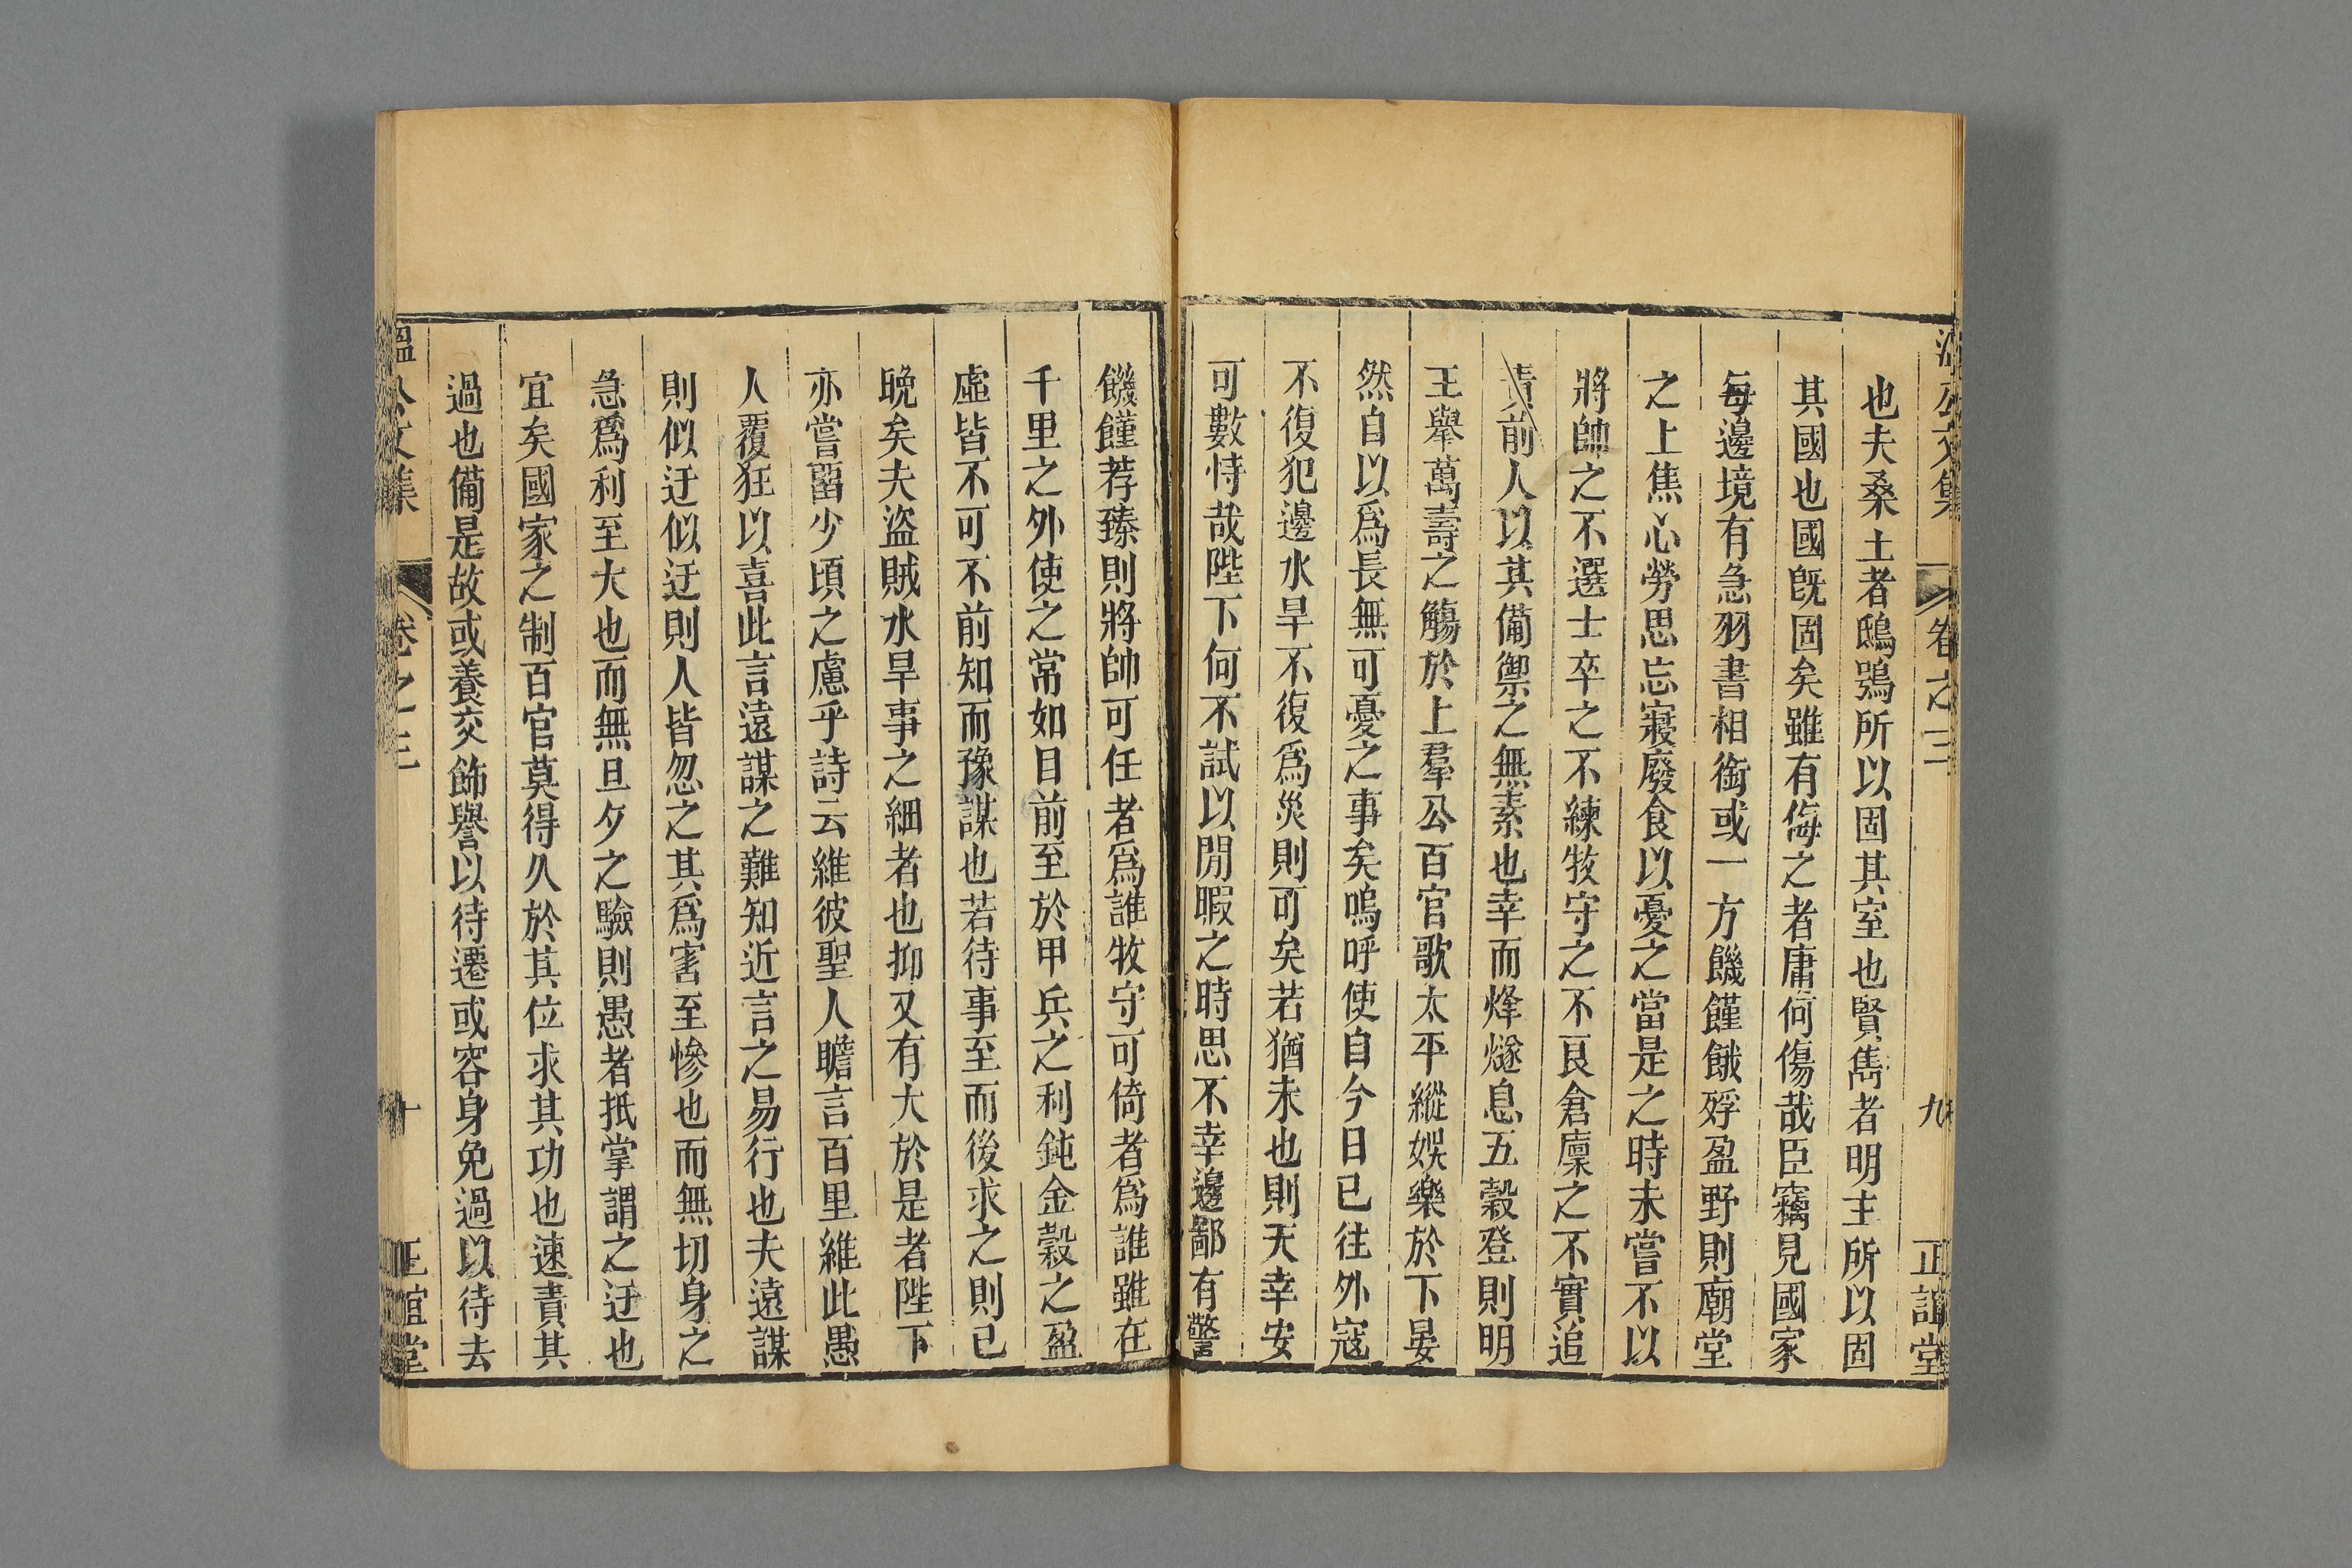 溫公文集 卷之三 九 正誼堂
也夫桑土者鴟鴞所以固其室也賢雋者明主所以固
其國也國旣固矣雖有侮之者庸何傷哉臣竊見國家
每邊境有急羽書相銜或一方饑饉餓殍盈野則廟堂
之上焦心勞思忘寢廢食以憂之當是之時未嘗不以
將帥之不選士卒之不練牧守之不良倉廩之不實追
責前人以其備禦之無素也幸而烽燧息五穀登則明
王舉萬壽之觴於上羣公百官歌太平縱娛樂於下晏
然自以爲長無可憂之事矣嗚呼使自今日已往外寇
不復犯邊水旱不復爲災則可矣若猶未也則天幸安
可數恃哉陛下何不試以閒暇之時思不幸邊鄙有警
饑饉荐臻則將帥可任者爲誰牧守可倚者爲誰雖在
千里之外使之常如目前至於甲兵之利鈍金穀之盈
虛皆不可不前知而豫謀也若待事至而後求之則已
晚矣夫盜賊水旱事之細者也抑又有大於是者陛下
亦嘗留少頃之慮乎詩云維彼聖人瞻言百里維此愚
人覆狂以喜此言遠謀之難知近言之易行也夫遠謀
則似迂似迂則人皆忽之其爲害至慘也而無切身之
急爲利至大也而無旦夕之驗則愚者抵掌謂之迂也
宜矣國家之制百官莫得久於其位求其功也速責其
過也備是故或養交飾譽以待遷或容身免過以待去
溫公文集 卷之三 十 正誼堂